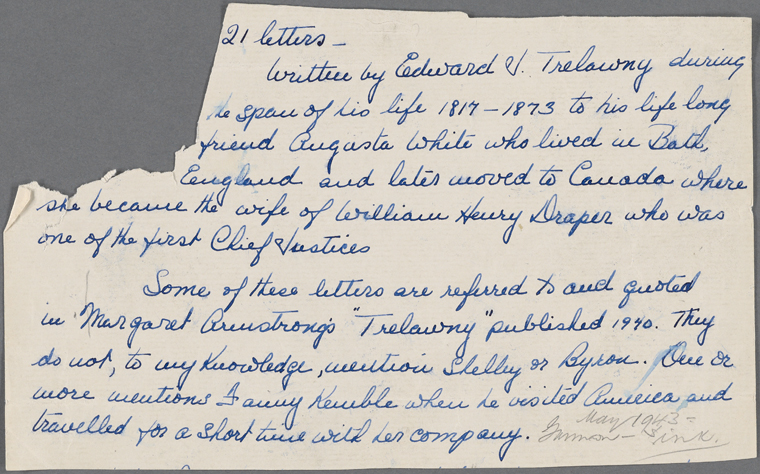 21 letters –
Written by Edward J. Trelawny during
he span of his life 1817 – 1873 to his life long
friend Augusta White who lived in Bath,
England and later moved to Canada where
she became the wife of William Henry Draper who was
one of the first Chief Justices
Some of these letters are referred to and quoted
in Margaret Armstrong's "Trelawny" published 1940. They
do not, to my knowledge, mention Shelley or Byron. One or
more mentions Fanny Kemble when he visited America and
travelled for a short time with her company.
May 1943 –